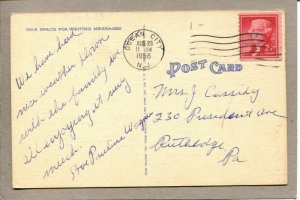 THIS SPACE FOR WRITING MESSAGES
OCEAN CITY
AUG 23
11 AM
1956
N.J.
2¢
POST CARD
We have had
nice weather down
with the family we
all enjoying it very
much.
Pauline
Mrs J Cassidy
230 President ave
Rutledge
Pa